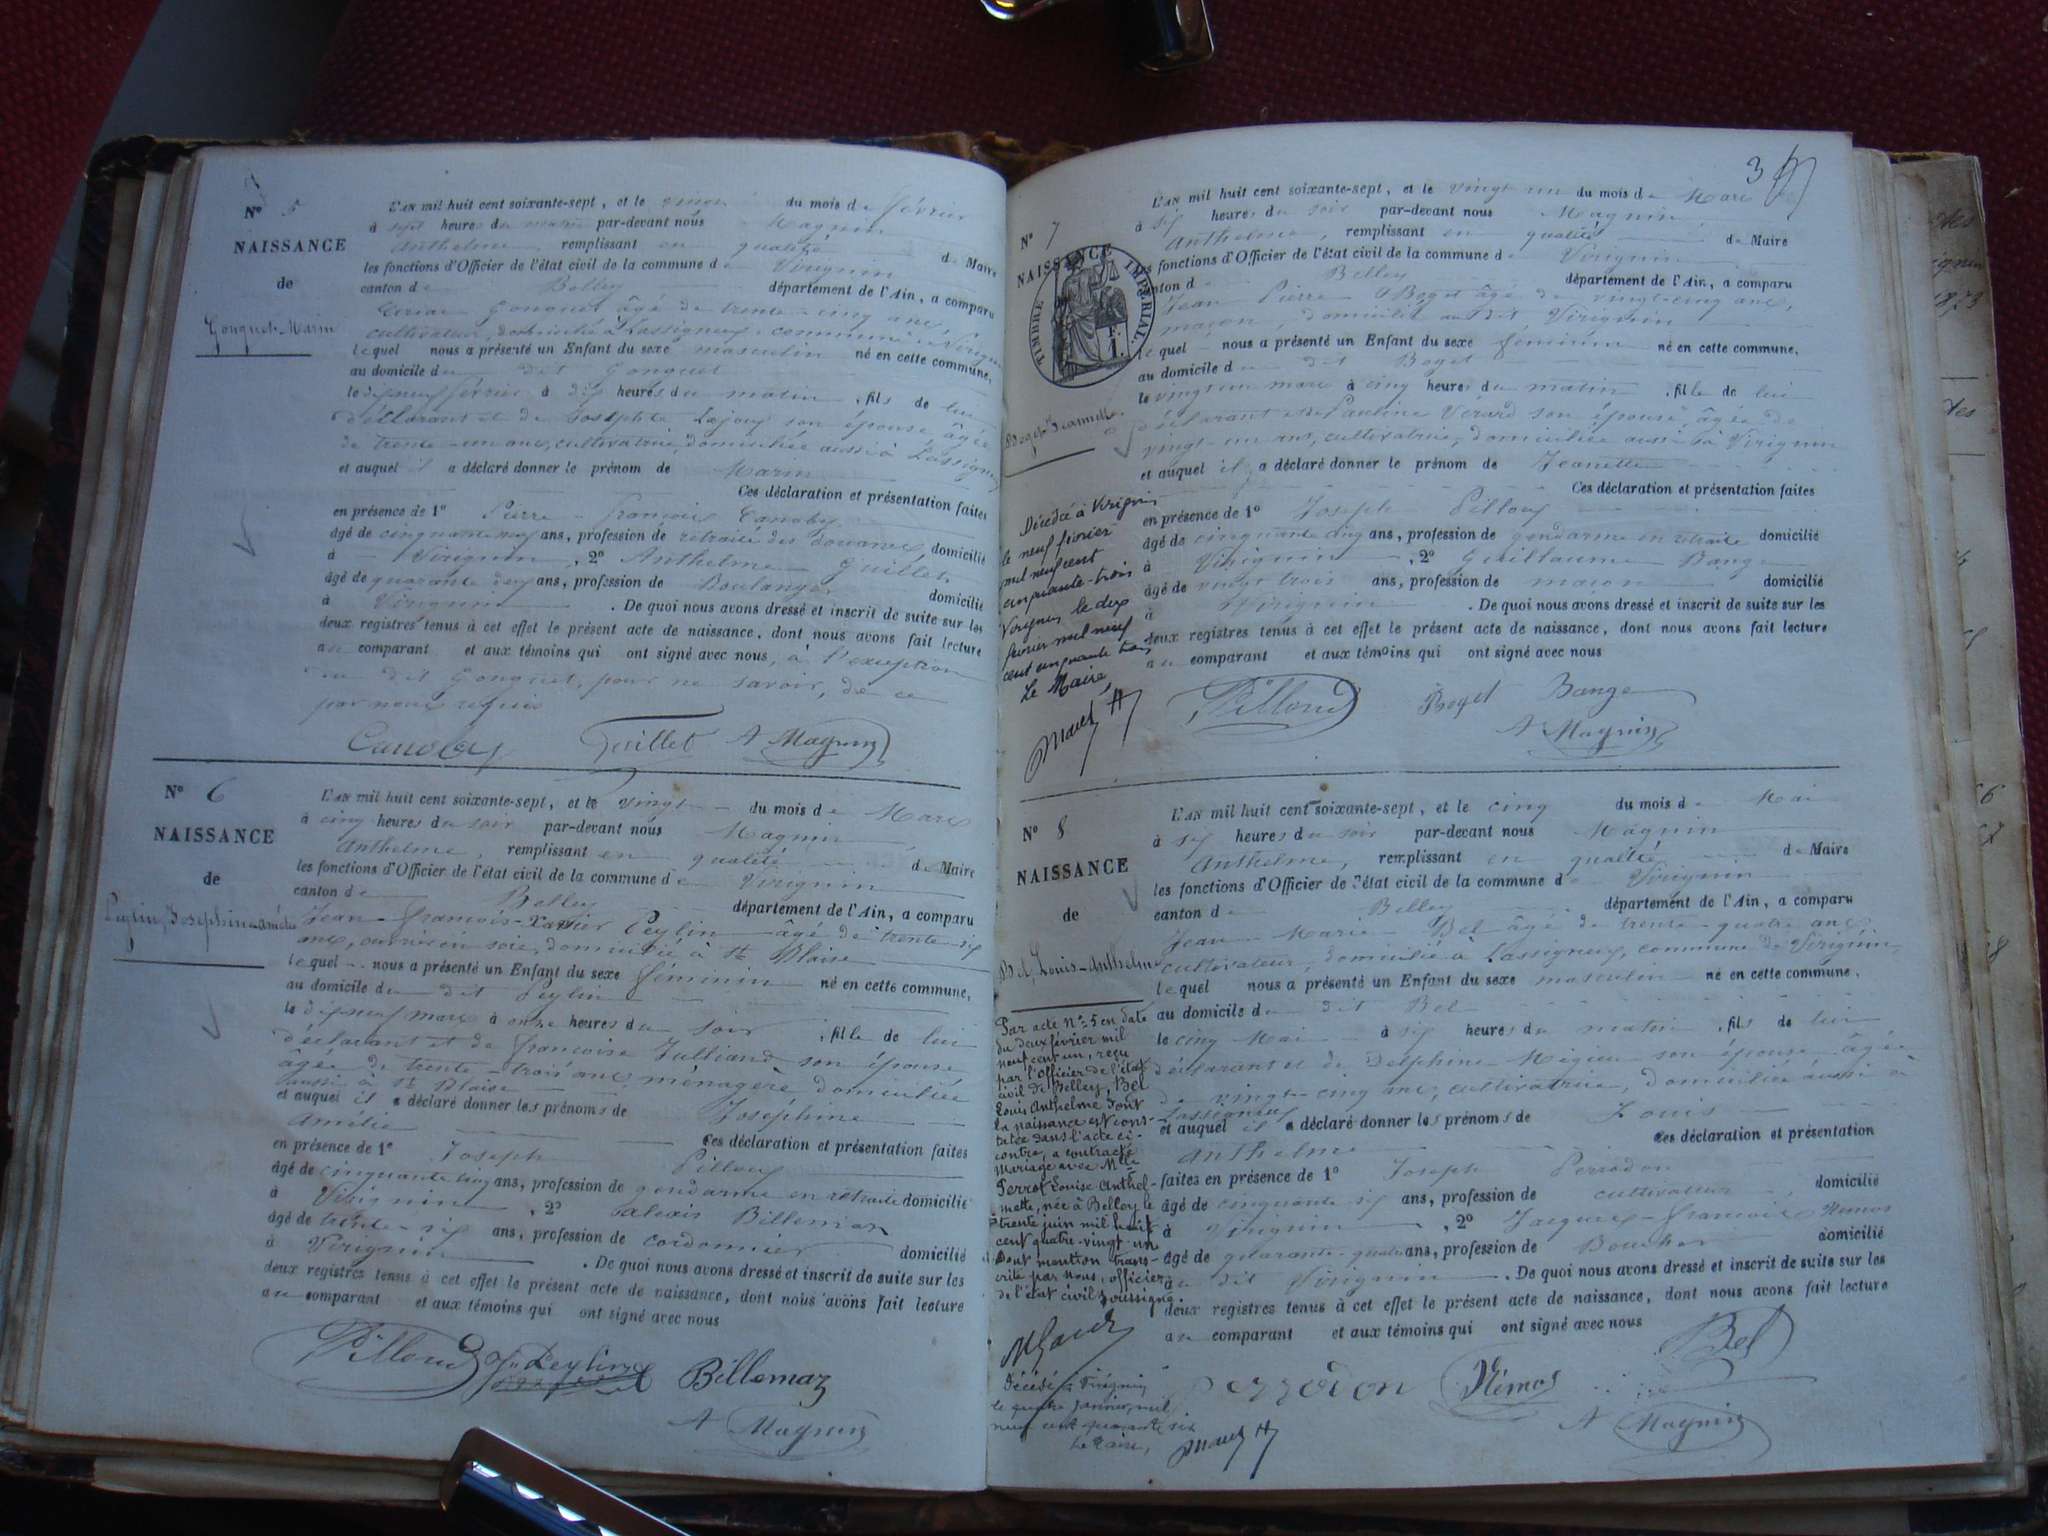 N° 5
NAISSANCE
de
Gonguet Marin
L'AN mil huit cent soixante-sept, et le vingt du mois de février
à sept heures du matin par-devant nous Magnin
Anthelme, remplissant en qualité de Maire
les fonctions d'Officier de l'état civil de la commune de Virignin
canton de Belley département de l'Ain, a comparu
Gonguet âgé de trente-cinq ans,
cultivateur, domicilié à Lassignieu, commune de Virignin
lequel nous a présenté un Enfant du sexe masculin né en cette commune,
au domicile du dit Gonguet
le dixneuf février à dix heures du matin, fils de lui
déclarant et de Josephte Lajoux son épouse âgée
de trente-un ans, cultivatrice, domiciliée aussi à Lassignieu
et auquel il a déclaré donner le prénom de Marin
Ces déclaration et présentation faites
en présence de 1° Pierre-François Canoby
âgé de cinquante neuf ans, profession de retraité des douanes domicilié
à Virignin, 2° Anthelme Guillet
âgé de quarante deux ans, profession de Boulanger domicilié
à Virignin. De quoi nous avons dressé et inscrit de suite sur les
deux registres tenus à cet effet le présent acte de naissance, dont nous avons fait lecture
au comparant et aux témoins qui ont signé avec nous, à l'exception
du dit Gonguet, pour ne savoir, de ce
par nous requis
Canoby Guillet A Magnin
N° 6
NAISSANCE
de
Peylin, Joséphine-Amélie
L'AN mil huit cent soixante-sept, et le vingt du mois de Mars
à cinq heures du soir par-devant nous Magnin
Anthelme, remplissant en qualité de Maire
les fonctions d'Officier de l'état civil de la commune de Virignin
canton de Belley département de l'Ain, a comparu
Jean-François-Xavier Peylin âgé de trente-six
ans, ouvrier en soie, domicilié à St Blaise
lequel nous a présenté un Enfant du sexe féminin né en cette commune,
au domicile du dit Peylin
le dixneuf mars à onze heures du soir, fille de lui
déclarant et de Françoise Julliand son épouse
âgée de trente-trois ans ménagère domiciliée
aussi à St Blaise
et auquel il a déclaré donner les prénoms de Joséphine
Amélie
Ces déclaration et présentation faites
en présence de 1° Joseph Pilloux
âgé de cinquante cinq ans, profession de gendarme en retraite domicilié
à Virignin, 2° Alexis Billemaz
âgé de trente-six ans, profession de cordonnier domicilié
à Virignin. De quoi nous avons dressé et inscrit de suite sur les
deux registres tenus à cet effet le présent acte de naissance, dont nous avons fait lecture
au comparant et aux témoins qui ont signé avec nous
Pilloud Peylin Billemaz
A Magnin
3
N° 7
NAISSANCE
TIMBRE IMPÉRIAL
F.
1.
Boget Jeannette
L'AN mil huit cent soixante-sept, et le vingt un du mois de Mars
à six heures du soir par-devant nous Magnin
Anthelme, remplissant en qualité de Maire
les fonctions d'Officier de l'état civil de la commune de Virignin
canton de Belley département de l'Ain, a comparu
Jean Pierre Boget âgé de vingt-cinq ans,
maçon, domicilié au dit Virignin
lequel nous a présenté un Enfant du sexe féminin né en cette commune,
au domicile du dit Boget
le vingt un mars à cinq heures du matin, fille de lui
déclarant et de Pauline Vérard son épouse âgée de
vingt-un ans, cultivatrice, domiciliée aussi à Virignin
et auquel il a déclaré donner le prénom de Jeanette
Ces déclaration et présentation faites
en présence de 1° Joseph Pilloux
âgé de cinquante cinq ans, profession de gendarme en retraite domicilié
à Virignin, 2° Guillaume Bange
âgé de vingt trois ans, profession de maçon domicilié
à Virignin. De quoi nous avons dressé et inscrit de suite sur les
deux registres tenus à cet effet le présent acte de naissance, dont nous avons fait lecture
au comparant et aux témoins qui ont signé avec nous
Pilloud Boget Bange
A Magnin
Décédée à Virignin
le neuf février
mil neuf cent
cinquante-trois
Virignin le dix
février mil neuf
cent cinquante trois
Le Maire,
N° 8
NAISSANCE
de
Bel, Louis-Anthelme
L'AN mil huit cent soixante-sept, et le cinq du mois de Mai
à six heures du soir par-devant nous Magnin
Anthelme, remplissant en qualité de Maire
les fonctions d'Officier de l'état civil de la commune de Virignin
canton de Belley département de l'Ain, a comparu
Jean-Marie Bel âgé de trente-quatre ans
cultivateur, domicilié à Lassignieu, commune de Virignin,
lequel nous a présenté un Enfant du sexe masculin né en cette commune,
au domicile du dit Bel
le cinq Mai à six heures du matin, fils de lui
déclarant et de Delphine Mégieu son épouse, âgée
de vingt-cinq ans, cultivatrice, domiciliée aussi à
Lassignieu
et auquel il a déclaré donner les prénoms de Louis
Anthelme
Ces déclaration et présentation
faites en présence de 1° Joseph Perrodon
âgé de cinquante six ans, profession de cultivateur, domicilié
à Virignin, 2° Jacques-François Némoz
âgé de quarante-quatre ans, profession de Boucher domicilié
au dit Virignin. De quoi nous avons dressé et inscrit de suite sur les
deux registres tenus à cet effet le présent acte de naissance, dont nous avons fait lecture
au comparant et aux témoins qui ont signé avec nous
Bel
Perrodon Némoz
A Magnin
Par acte N° 5 en date
du deux février mil
neuf cent un, reçu
par l'Officier de l'état
civil de Belley, Bel
Louis Anthelme dont
la naissance est cons-
tatée dans l'acte ci-
contre, a contracté
mariage avec Mlle
Perrot Louise Anthel-
mette, née à Belley le
trente juin mil huit
cent quatre-vingt-un
Dont mention trans-
crite par nous, officier
de l'état civil soussigné.
Décédé à Virignin
le quatre janvier mil
neuf cent quarante six
Le Maire,